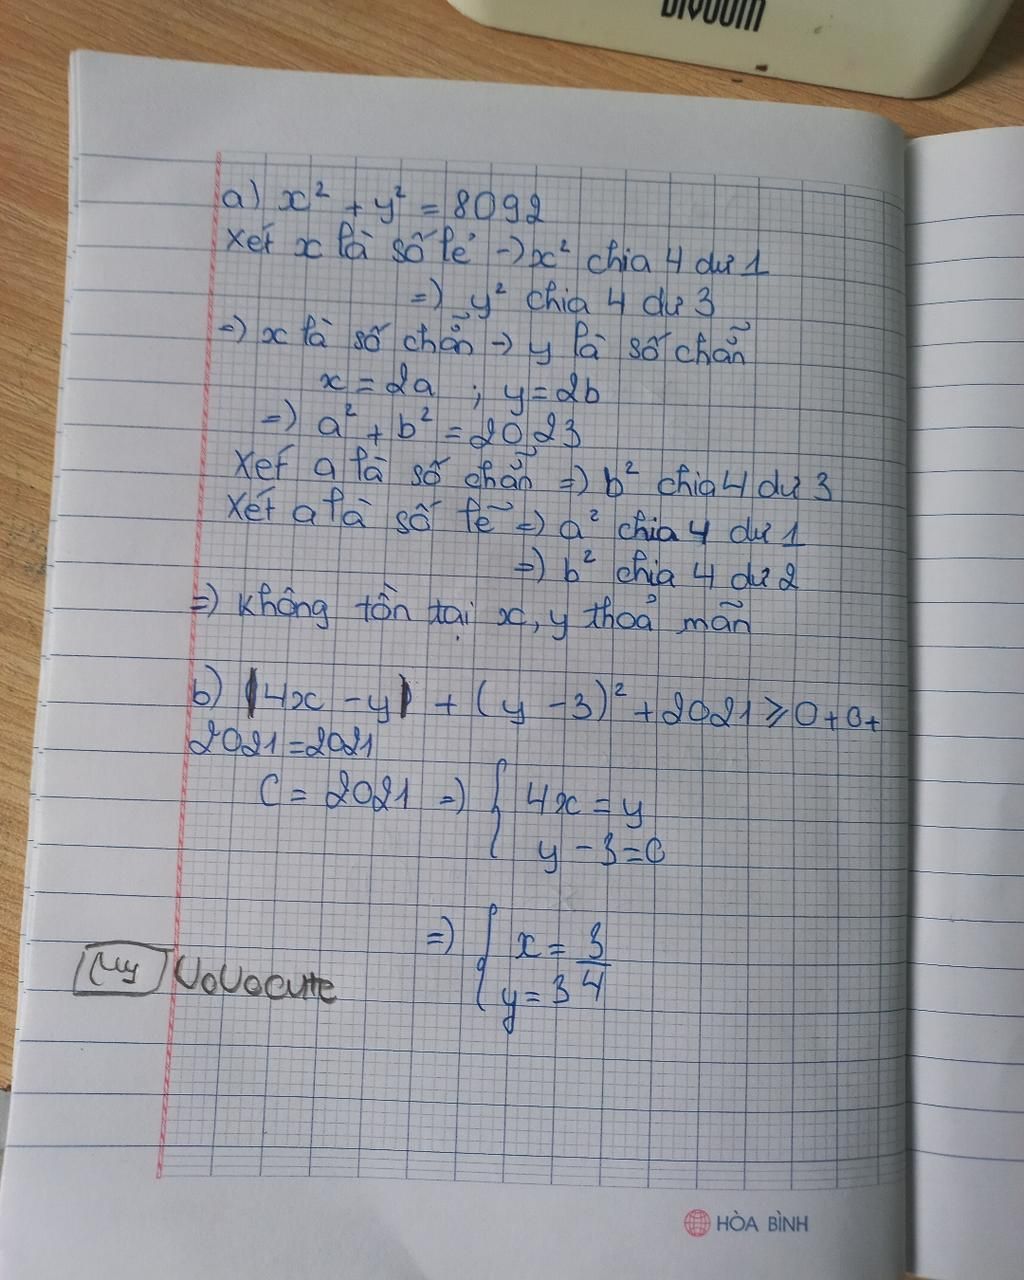 DIVOOM
a) x² + y² = 8092
Xét x là số lẻ -> x² chia 4 dư 1
=> y² chia 4 dư 3
=> x là số chẵn -> y là số chẵn
x = 2a ; y = 2b
=> a² + b² = 2023
Xét a là số chẵn => b² chia 4 dư 3
Xét a là số lẽ => a² chia 4 dư 1
=> b² chia 4 dư 2
=> không tồn tại x, y thoả mãn
b) |4x - y| + (y - 3)² + 2021 ≥ 0 + 0 +
2021 = 2021
C = 2021 => { 4x = y
y - 3 = 0
=> { x = 3/4
y = 3
My VoVocute
HÒA BÌNH